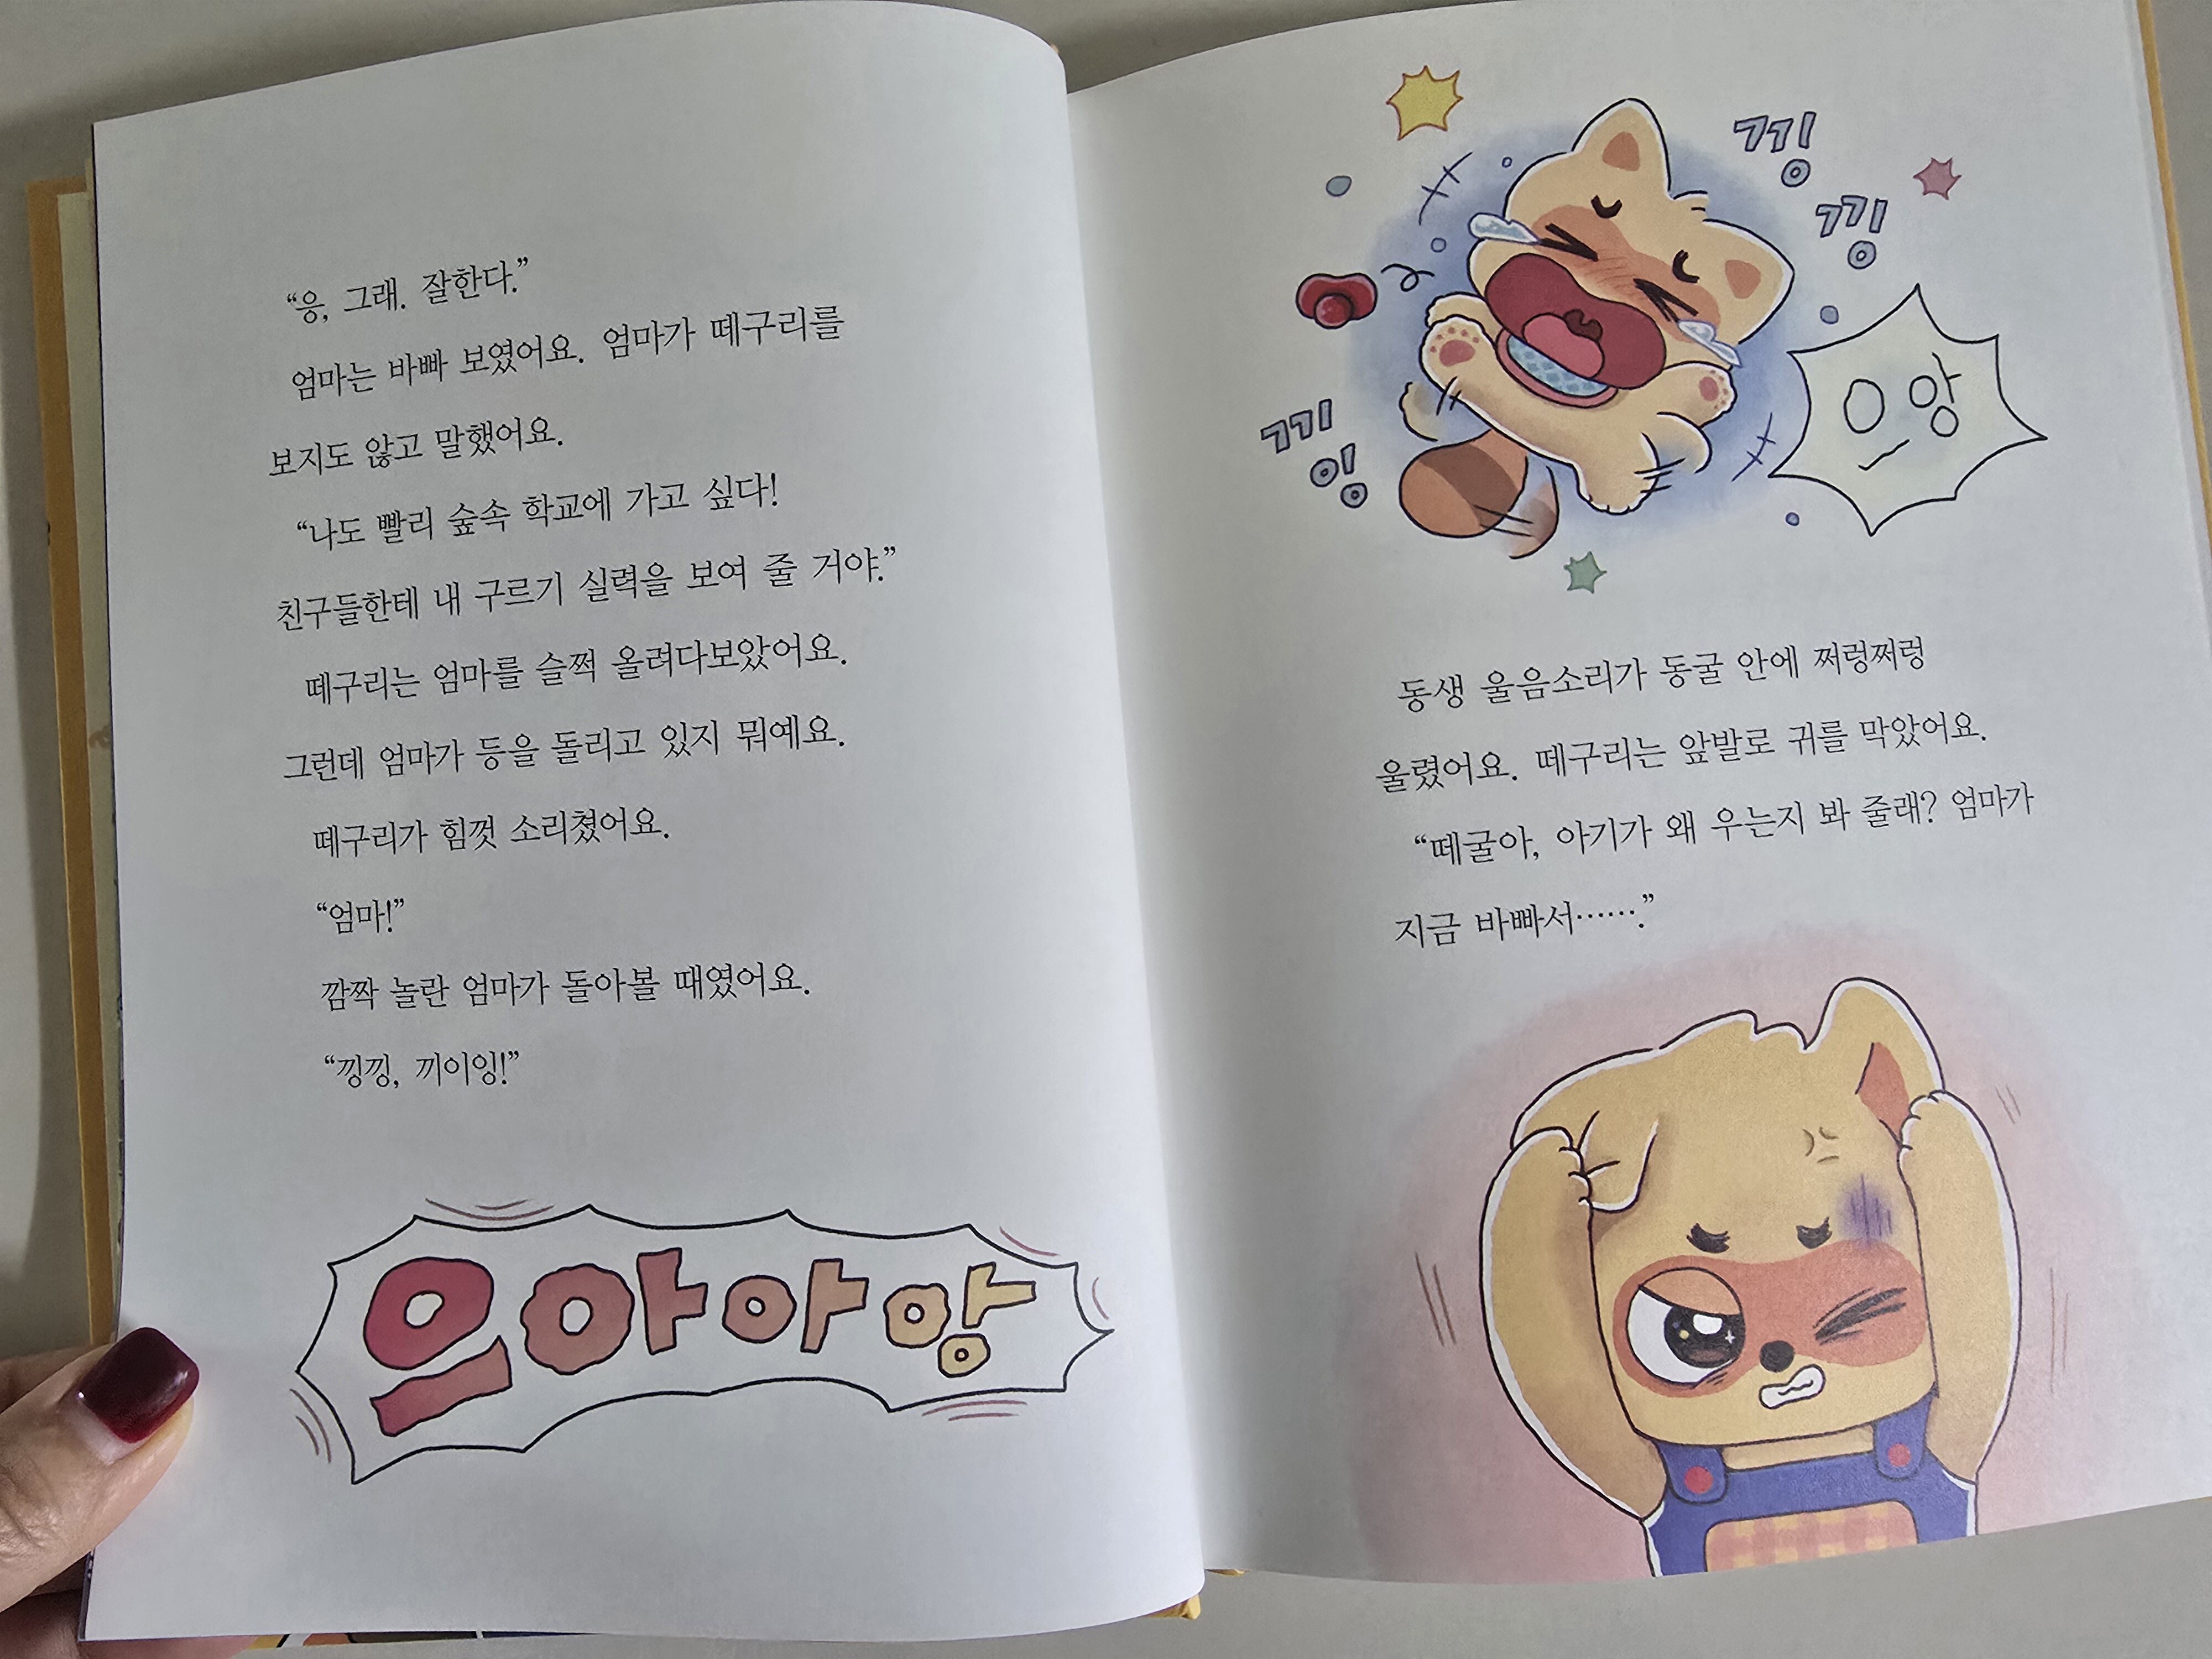 “응, 그래. 잘한다.”
엄마는 바빠 보였어요. 엄마가 떼구리를
보지도 않고 말했어요.
“나도 빨리 숲속 학교에 가고 싶다!
친구들한테 내 구르기 실력을 보여 줄 거야.”
떼구리는 엄마를 슬쩍 올려다보았어요.
그런데 엄마가 등을 돌리고 있지 뭐예요.
떼구리가 힘껏 소리쳤어요.
“엄마!”
깜짝 놀란 엄마가 돌아볼 때였어요.
“낑낑, 끼이잉!”
으아아앙
낑
낑
끼
잉
으앙
동생 울음소리가 동굴 안에 쩌렁쩌렁
울렸어요. 떼구리는 앞발로 귀를 막았어요.
“떼굴아, 아기가 왜 우는지 봐 줄래? 엄마가
지금 바빠서…….”